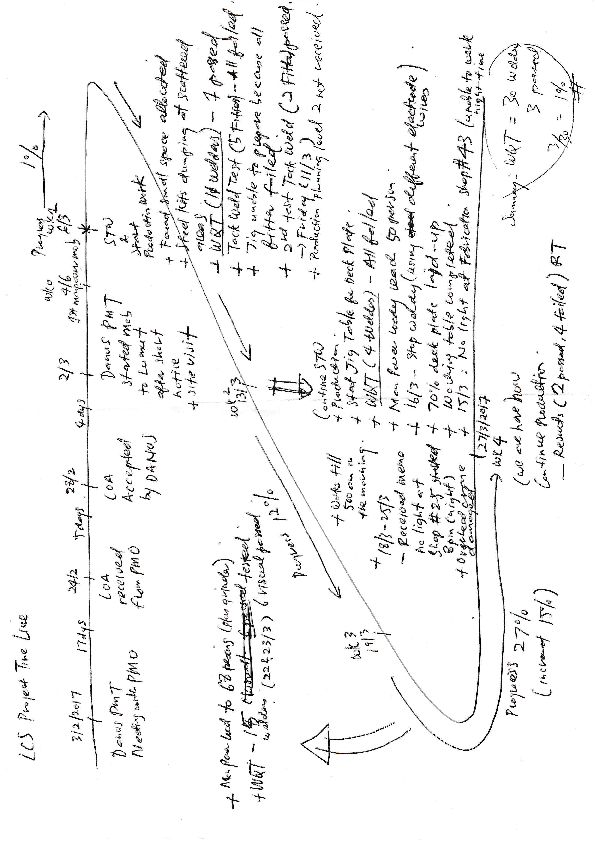 LCS Project Time Line
3/2/2017
17 days
24/2
5 days
28/2
4 days
2/3
wk0
4/6
1st manpower mob
Progress
wk1
6/3
1%
Danus PMT
Meeting with PMO
LOA
received
from PMO
LOA
Accepted
by DANUS
Danus PMT
started mob
to Lumut
after short
notice
+ site visit
STW
&
Start
Production work
+ Found small space allocated
+ Steel kits dumping at scattered
areas
+ WQT (10 welders) - 7 passed
+ Tack Weld Test (5 Fitters) - All failed
+ Jig unable to prepare because all
fitter failed
+ 2nd test Tack Weld (2 Fitters) passed
-> Friday (11/3)
+ Production planning level 2 not received
wk 2
13/3
Continue STW
+ Production.
+ Start Jig Table for Deck Plate.
+ WQT (4 welders) - All failed
+ Man power loading reach 50 person.
+ 16/3 - Stop welding (using different electrode)
wires
+ 70% deck plate laid-up
+ Working table completed
+ 15/3: No light at Fabrication shop #43 (unable to work
night-time
+ Works till
5:00 am in
the morning.
+ 18/3 - 25/3
- Received memo
No light at
Shop #25 started
8pm (night)
+ Overhead crane
damaged
Progress 12%
wk 3
19/3
+ Manpower to 68 persons (plus grinder)
+ WQT - 15 tested
welders (22 & 23/3) (visual passed
27/3/2017
wk 4
(we are here now
Continue Production.
- Results (2 passed, 4 failed) RT
Progress 27%
(increment 15%)
Summary - WQT = 30 welders
3 passed
3/30 = 1%
#